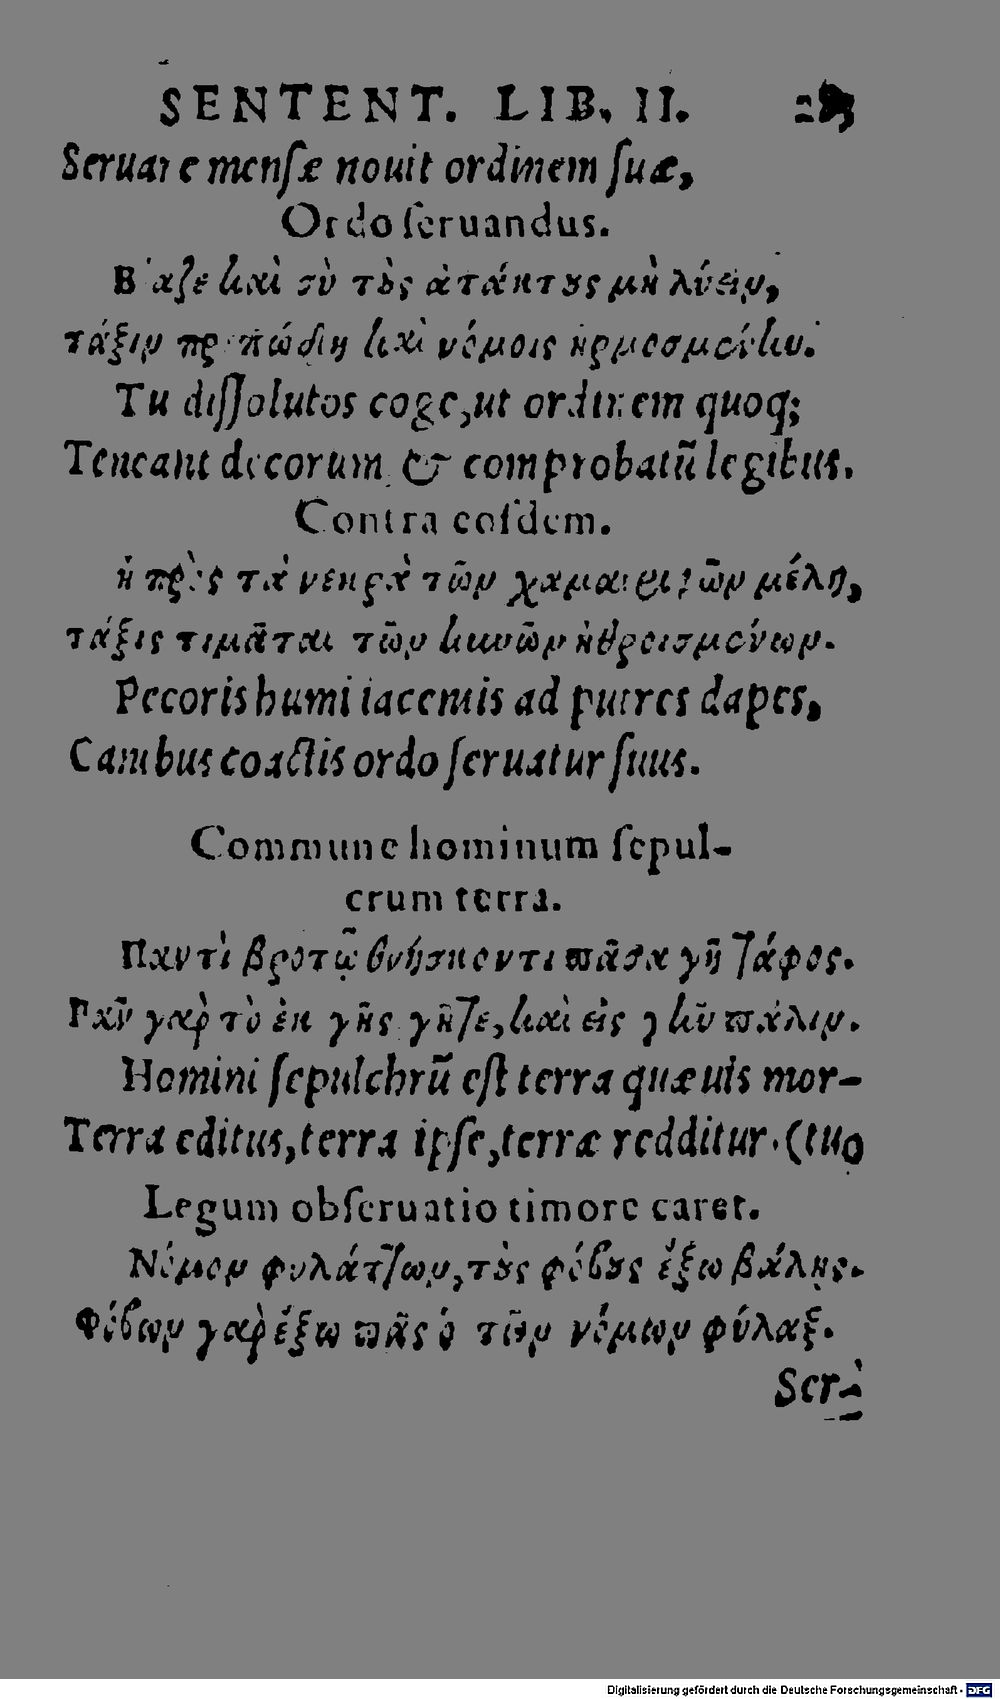 SENTENT. LIB. II.
Seruare mensæ nouit ordinem suæ,
Ordo seruandus.
Βίαζε καὶ σὺ τοὺς ἀτάκτους μὴ λύειν,
τάξιν πρεπώδη καὶ νόμοις ἡρμοσμένην.
Tu dissolutos coge, ut ordinem quoq;
Teneant decorum & comprobatũ legibus.
Contra eosdem.
ἡ πρὸς τὰ νεκρὰ τῶν χαμαιριφῶν μέλη,
τάξις τιμᾶται τῶν κυνῶν ἠθροισμένων.
Pecoris humi iacentis ad putres dapes,
Canibus coactis ordo seruatur suus.
Commune hominum sepul-
crum terra.
Παντὶ βροτῷ θνήσκοντι πᾶσα γῆ τάφος.
Πᾶν γὰρ τὸ ἐκ γῆς γῆτε, καὶ εἰς γῆν πάλιν.
Homini sepulchrũ est terra quæuis mor-
Terra editus, terra ipse, terræ redditur. (tuo
Legum obseruatio timore caret.
Νόμον φυλάττων, τοὺς φόβους ἔξω βάλῃς.
Φόβων γὰρ ἔξω πᾶς ὁ τῶν νόμων φύλαξ.
Ser-
Digitalisierung gefördert durch die Deutsche Forschungsgemeinschaft - DFG